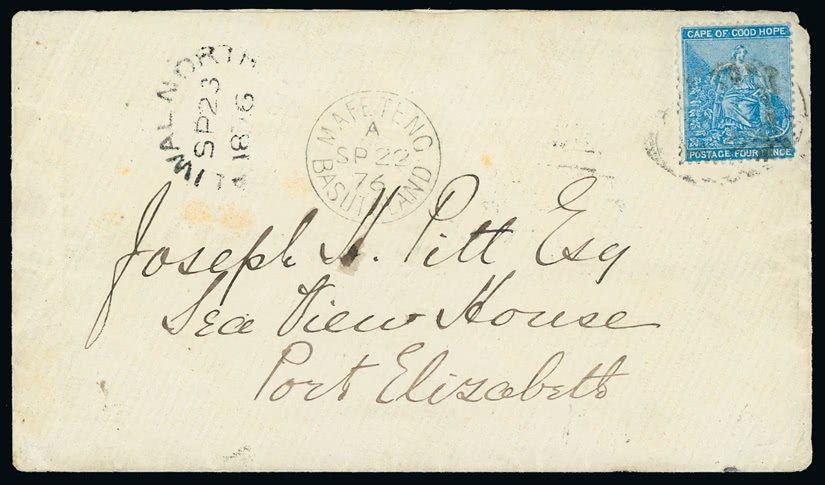 CAPE OF GOOD HOPE
POSTAGE FOUR PENCE
ALIWAL NORTH
SP 23
1876
MAFETENG
A
SP 22
76
BASUTOLAND
Joseph H. Pitt Esq
Sea View House
Port Elizabeth